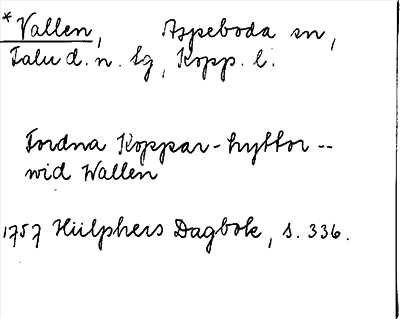 *Vallen, Aspeboda sn,
Falu d. n. tg, Kopp. l.
Fordna Koppar-hyttor --
wid Wallen
1757 Hülphers Dagbok, s. 336.